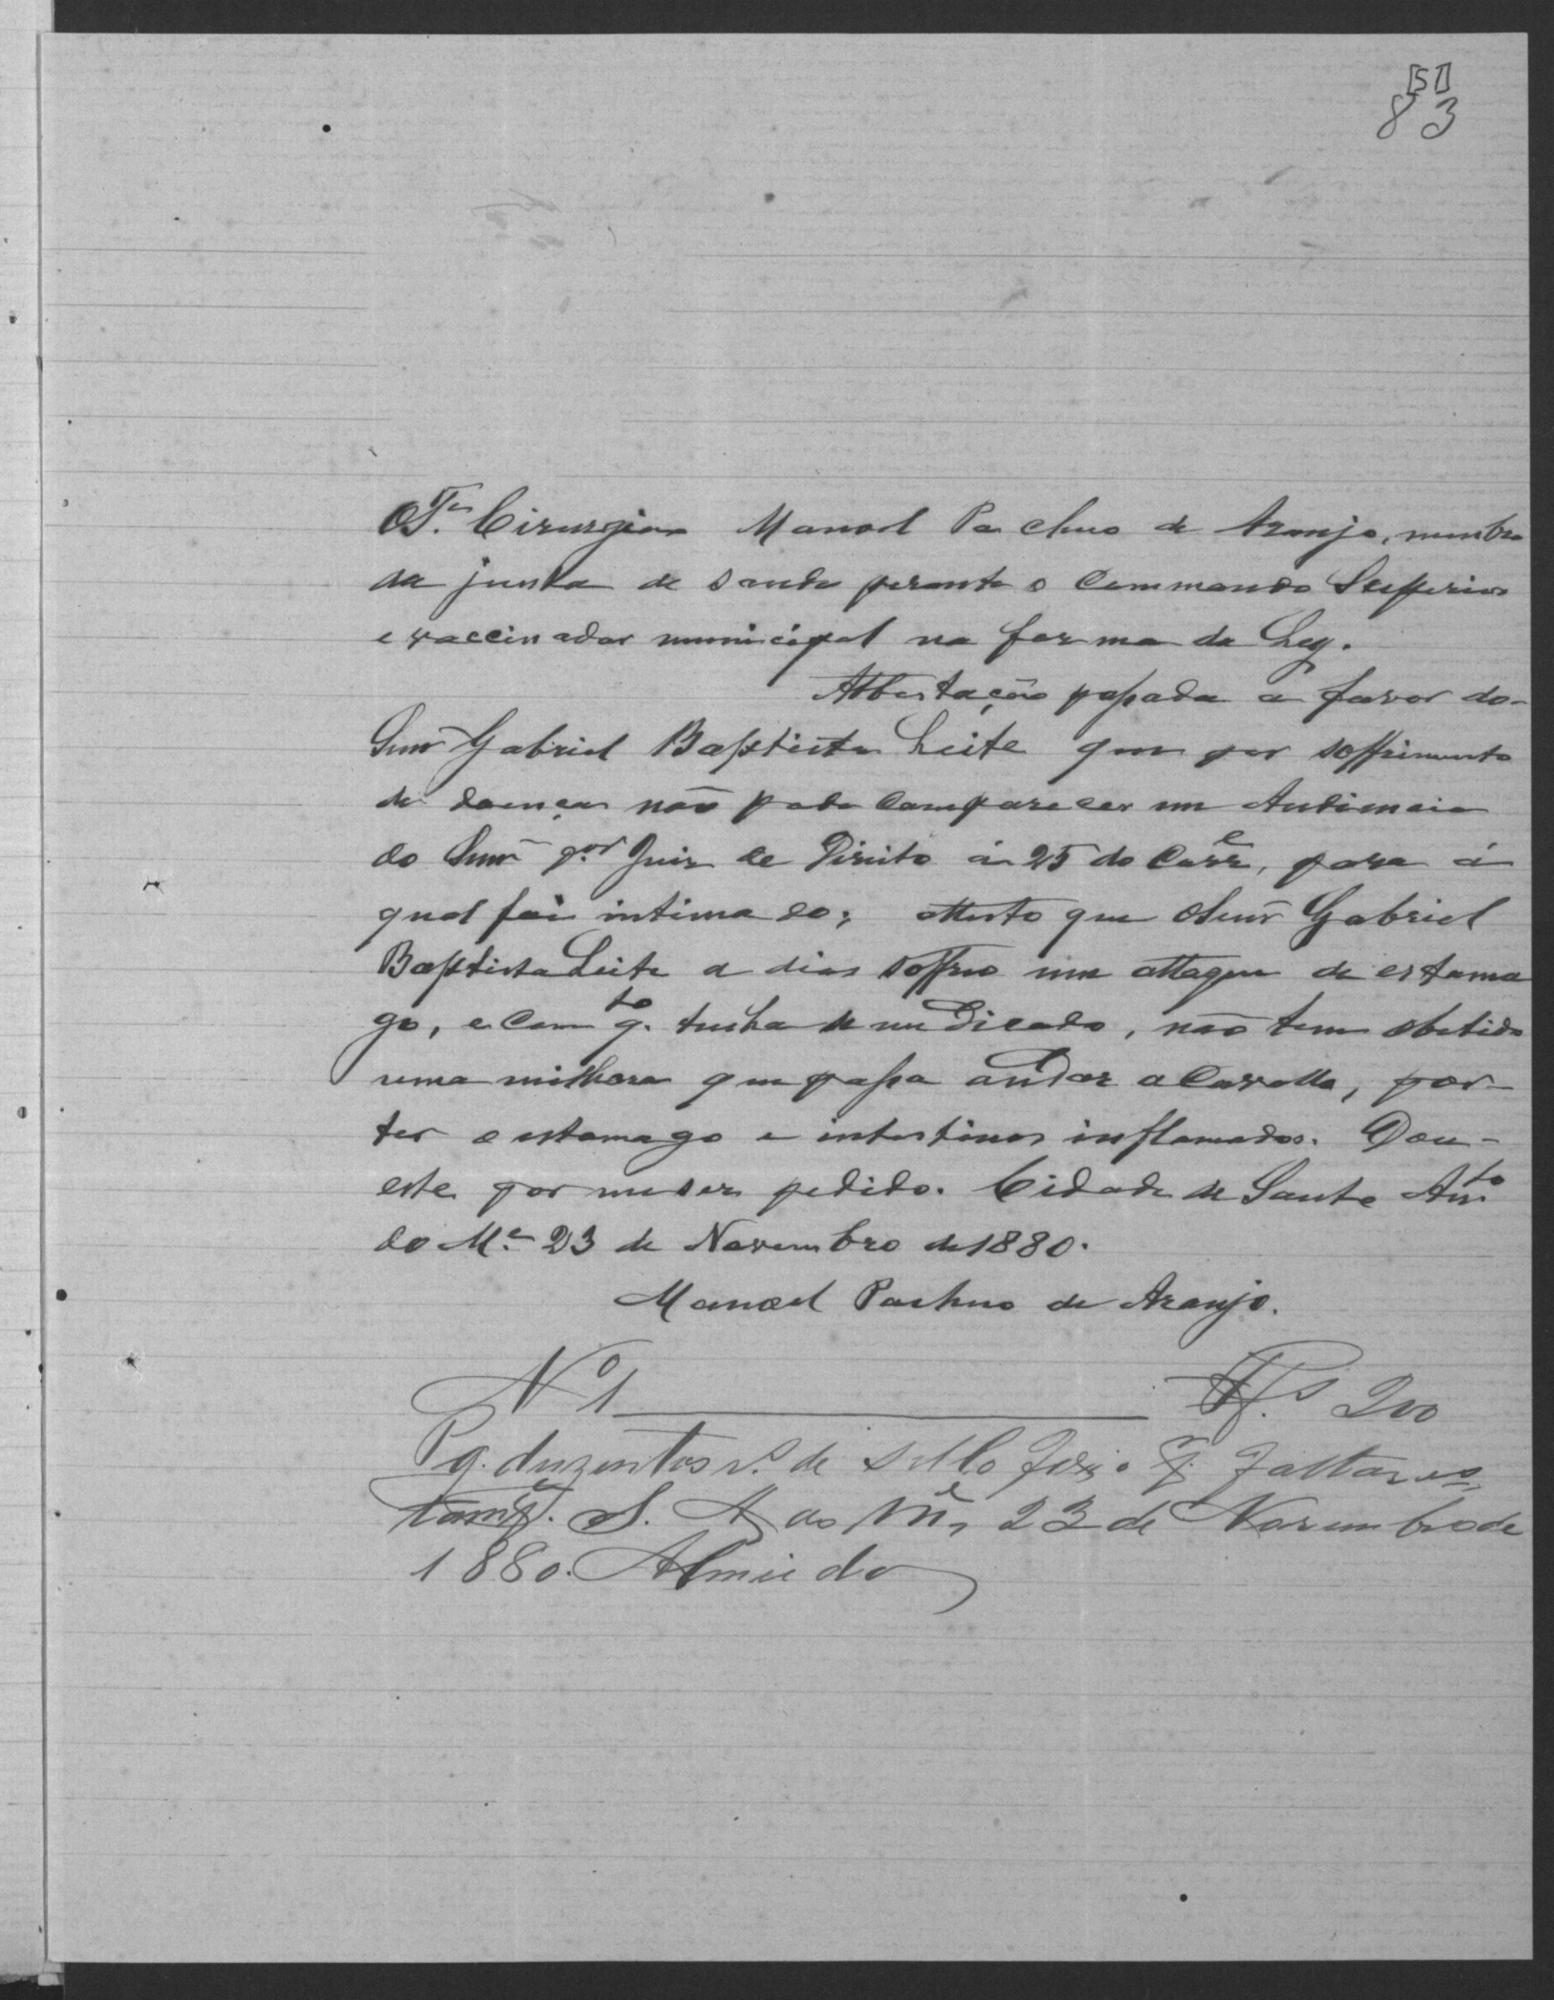 [51]
83
O Tn. Cirurgião Manoel Pacheco de Araujo, membro
da junta de saude perante o Commando Superior
e vaccinador municipal na forma da Ley.
Attestação passada a favor do
Senr Gabriel Baptista Leite que por soffrimento
de doença não pode comparecer em Audiencia
do Senr Dor Juiz de Direito á 25 do Corre, para á
qual foi intimado; attesto que o Senr Gabriel
Baptista Leite a dias soffreo um attaque de estama
go, e com qto tenha se medicado, não tem obtido
uma milhora que possa andar a Cavallo, por
ter o estamago e intestinos inflamados. Dou
este por me ser pedido. Cidade de Santo Anto
do Ma 23 de Novembro de 1880.
Manoel Pacheco de Araujo.
Nº 1 Rs 200
Pg. duzentos rs. de sello fixo q. faltar es
tampa. S. A. do Me, 23 de Novembro de
1880. Almeida